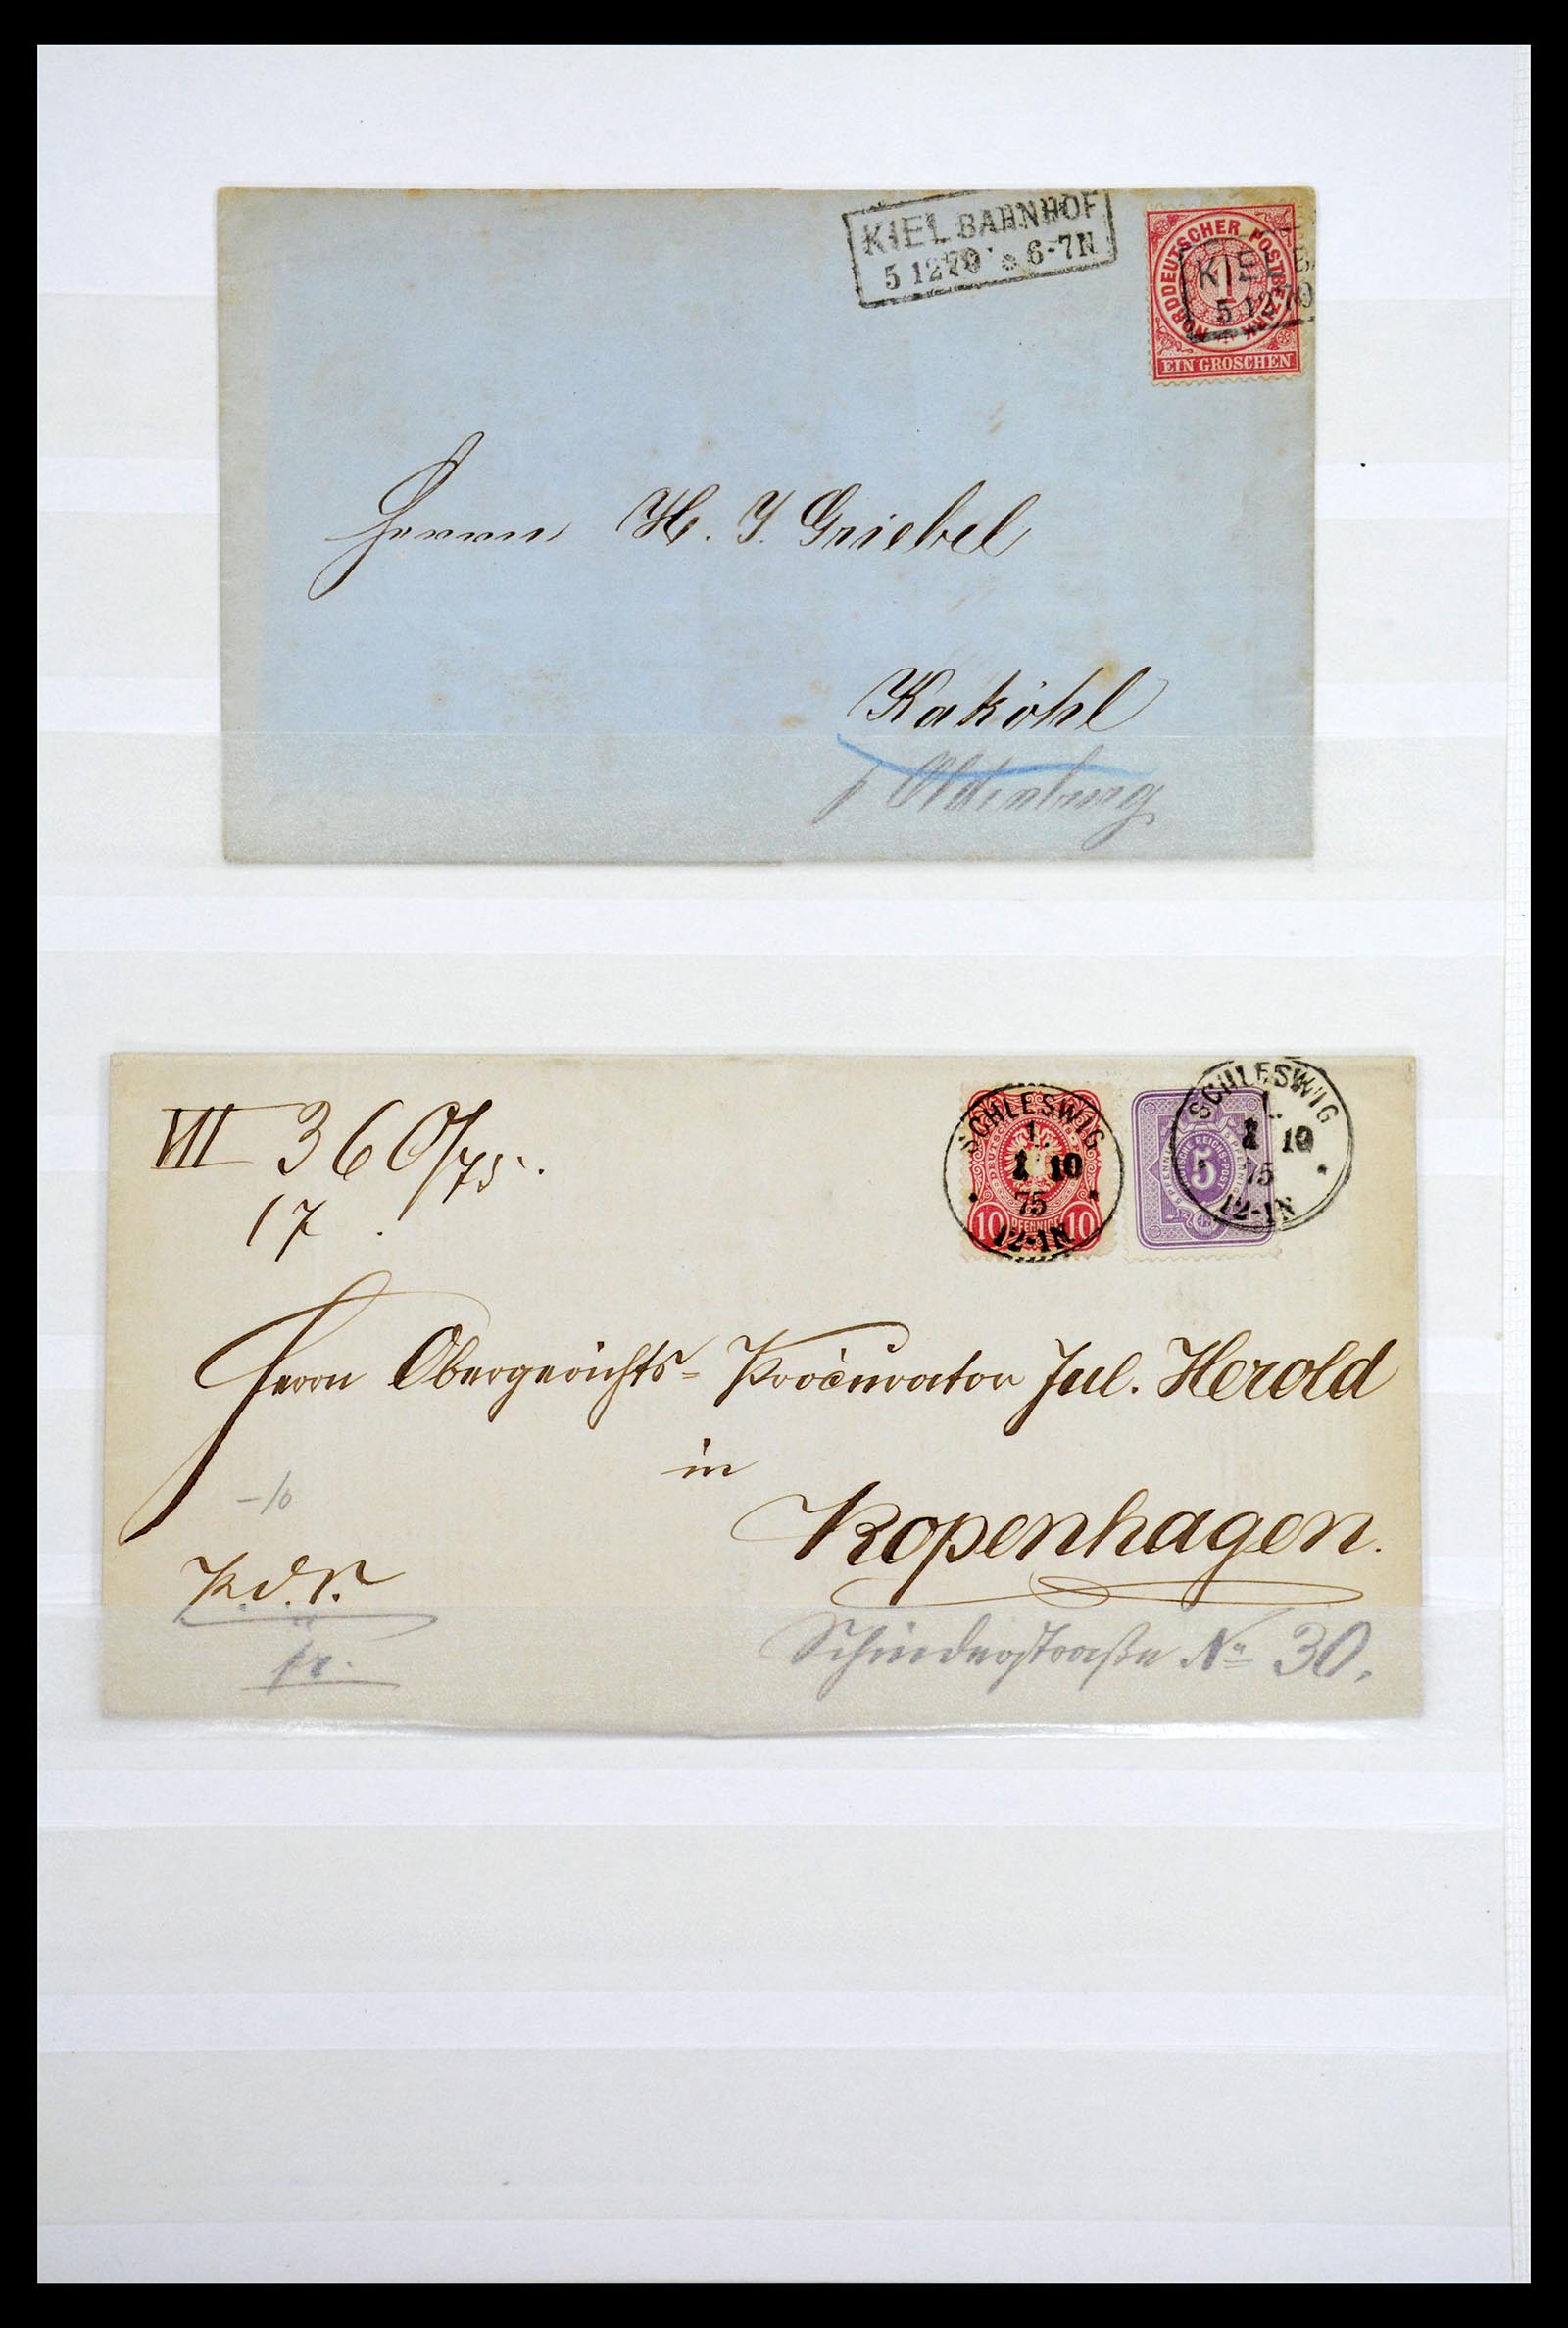 KIEL BAHNHOF
5 12 70 * 6-7N
NORDDEUTSCHER POSTBEZIRK
1
KIEL BA
5 12 70
EIN GROSCHEN
Herrn H. J. Griebel
Kaköhl
p Oldenburg
VIII 360/75.
17
SCHLESWIG
1 10
75
12-1N
10 PFENNIGE 10
SCHLESWIG
1 10
75
12-1N
DEUTSCHE REICHS-POST
5 PFENNIGE
5
Herrn Obergerichts= Procurator Jul. Herold
in
Kopenhagen.
-10
K.d.V.
fr.
Schinderstraße No 30.